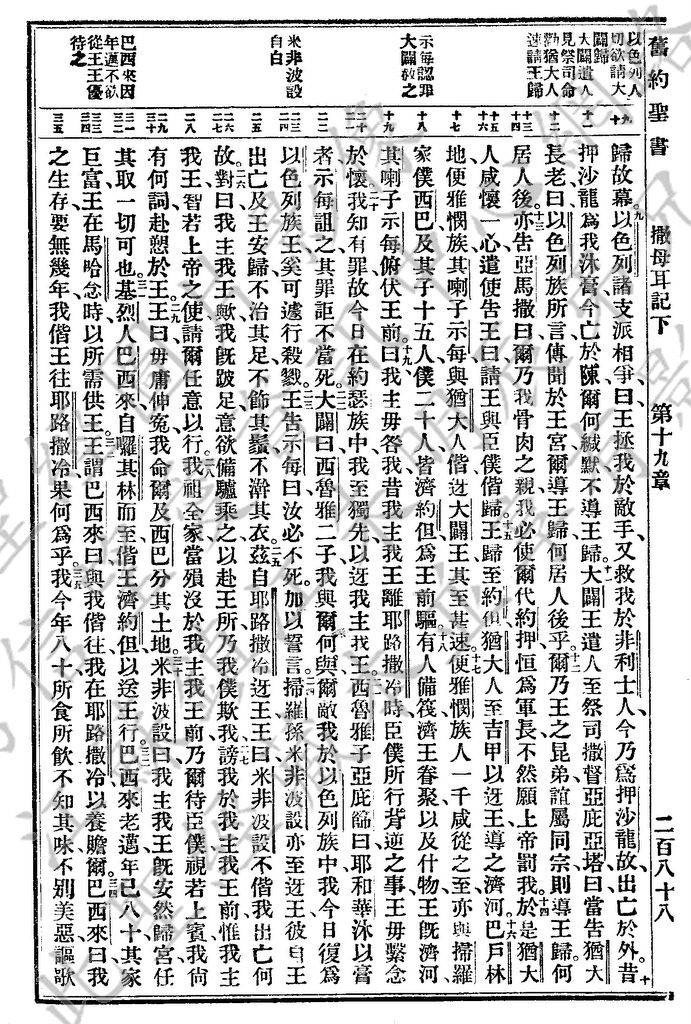 舊約聖書 撒母耳記下 第十九章 二百八十八
以色列人
切欲請大
闢歸
大闢遣人
見祭司命
勸猶大人
速請王歸
示每認罪
大闢赦之
米非波設
自白
巴西來因
年邁不欲
從王王優
待之
九
十
十一
十二
十三
十四
十五
十六
十七
十八
十九
二十
二一
二二
二三
二四
二五
二六
二七
二八
二九
三十
三一
三二
三三
三四
三五
歸故幕九以色列諸支派相爭曰王拯我於敵手又救我於非利士人今乃爲押沙龍故出亡於外昔十
押沙龍爲我沐膏今亡於陳爾何緘默不導王歸十一大闢王遣人至祭司撒督亞庇亞塔曰當告猶大
長老曰以色列族所言傳聞於王宮爾導王歸何居人後乎十二爾乃王之昆弟誼屬同宗則導王歸何
居人後十三亦告亞馬撒曰爾乃我骨肉之親我必使爾代約押恒爲軍長不然願上帝罰我十四於是猶大
人咸懷一心遣使告王曰請王與臣僕偕歸十五王歸至約但猶大人至吉甲以迓王導之濟河十六巴戶林
地便雅憫族其喇子示每與猶大人偕迓大闢王其至甚速十七便雅憫族人一千咸從之至亦與掃羅
家僕西巴及其子十五人僕二十人皆濟約但爲王前驅十八有人備筏濟王眷聚以及什物王旣濟河
其喇子示每俯伏王前十九曰我主毋咎我昔我主我王離耶路撒冷時臣僕所行背逆之事王毋繫念
於懷二十我知有罪故今日在約瑟族中我至獨先以迓我主我王二一西魯雅子亞庇篩曰耶和華沐以膏
者示每詛之其罪詎不當死二二大闢曰西魯雅二子我與爾何與爾敵我於以色列族中我今日復爲
以色列族王奚可遽行殺戮二三王告示每曰汝必不死加以誓言二四掃羅孫米非波設亦至迓王彼自王
出亡及王安歸不治其足不飾其鬚不澣其衣二五茲自耶路撒冷迓王王曰米非波設不偕我出亡何
故二六對曰我主我王歟我旣跛足意欲備驢乘之以赴王所乃我僕欺我二七謗我於我主我王前惟我主
我王智若上帝之使請爾任意以行二八我祖全家當殞沒於我主我王前乃爾待臣僕視若上賓我尙
有何詞赴愬於王二九王曰毋庸伸寃我命爾及西巴分其土地三十米非波設曰我主我王旣安然歸宮任
其取一切可也三一基烈人巴西來自囉其林而至偕王濟約但以送王行三二巴西來老邁年已八十其家
巨富王在馬哈念時以所需供王三三王謂巴西來曰與我偕往我在耶路撒冷以養贍爾三四巴西來曰我
之生存要無幾年我偕王往耶路撒冷果何爲乎三五我今年八十所食所飲不知其味不別美惡謳歌